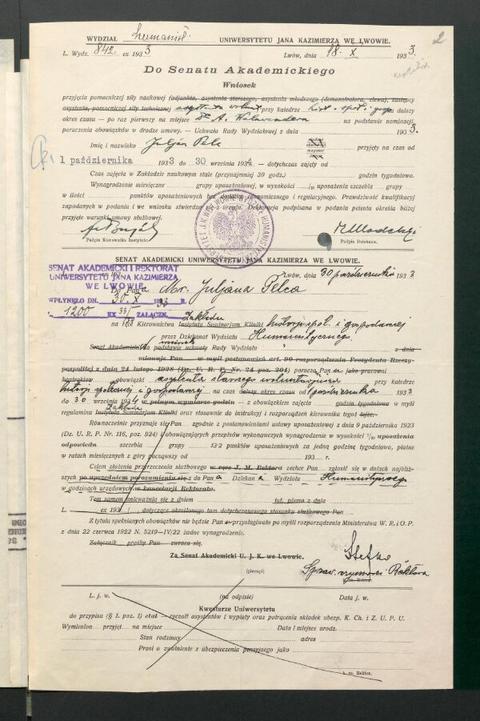 2
WYDZIAŁ humanist. UNIWERSYTETU JANA KAZIMIERZA WE LWOWIE.
L. Wydz. 842 ex 1933 Lwów, dnia 18. X. 1933
Do Senatu Akademickiego
Wniosek
przyjęcia pomocniczej siły naukowej (adjunkta, asystenta starszego, asystenta młodszego (demonstratora, elewa), zastępcy
asystenta, pomocniczej siły technicznej przy katedrze hist. społ. i gosp. na dalszy
okres czasu - po raz pierwszy na miejsce Dr A. na podstawie nominacji,
poruczenia obowiązków w drodze umowy. - Uchwała Rady Wydziałowej z dnia 193
Imię i nazwisko Juljan Pelc przyjęty na czas od
1 października 1933 do 30 września 1934 - dotychczas zajęty od
Czas zajęcia w Zakładzie naukowym stale (przynajmniej 30 godz.) godzin tygodniowo.
Wynagrodzenie miesięczne grupy uposażeniowej, w wysokości szczebla grupy
w ilości punktów uposażeniowych bez dodatku ekonomicznego i regulacyjnego. Prawdziwość kwalifikacyj
zapodanych w podaniu i we wniosku stwierdzam Deklaracja podpisana w podaniu petenta określa bliżej
przyjęte warunki umowy służbowej.
Podpis Kierownika Instytutu Podpis Dziekana.
SENAT AKADEMICKI UNIWERSYTETU JANA KAZIMIERZA WE LWOWIE.
SENAT AKADEMICKI I REKTORAT
UNIWERSYTETU JANA KAZIMIERZA
WE LWOWIE.
WPŁYNĘŁO DN. 30. X 1933
L. 1200 EX 33/ ZAŁĄCZN.
Lwów, dnia 30 października 1933
Do Pana Mr. Juljana Pelca
Zakładu
na ręce Kierownictwa Instytutu Seminarjum Kliniki historji społ. i gospodarczej
przez Dziekanat Wydziału Humanistycznego
Senat Akademicki na podstawie uchwały Rady Wydziału z dnia
mianuje Pan w myśl postanowień art. 90 rozporządzenia Prezydenta Rzeczy-
pospolitej z dnia 24 lutego 1928 (Dz. U. R. P. Nr. 74 poz. 204) porucza Pan jako pracowni
obowiązki asystenta starszego wolontarjusza przy katedrze
historji społecznej i gospodarczej na czas dalszy okres czasu od 1 października 1933
do 30 września 1934 w pełnym wymiarze godzin - z obowiązkiem zajęcia godzin tygodniowo w myśl
regulaminu Instytutu Seminarjum Kliniki oraz stosownie do instrukcji i rozporządzeń kierownika tegoż
Zakładu
Równocześnie przyznaje się Pan zgodnie z postanowieniami ustawy uposażeniowej z dnia 9 października 1923
(Dz. U. R. P. Nr. 116, poz. 924) i obowiązujących przepisów wykonawczych wynagrodzenie w wysokości uposażenia
odpowiedn. szczebla grupy punktów uposażeniowych za jedną godzinę tygodniowo, płatne
w ratach miesięcznych z góry począwszy od 193 r.
Celem złożenia przyrzeczenia służbowego w ręce J. M. Rektora zechce Pan zgłosić się w datach najbliż-
szych po uprzedniem porozumieniu się z Pana Dziekana Wydziału Humanistycznego
w godzinach urzędowych w kancelarji Rektoratu.
Tem samem unieważnia się z dniem tut. pisma z dnia
L. ex 193 dotyczące określonego tam dotychczasowego stosunku służbowego Pan
Z tytułu spełnianych obowiązków nie będzie Pan przysługiwało po myśli rozporządzenia Ministerstwa W. R. i O. P.
z dnia 22 czerwca 1922 N. 5219-IV/22 żadne wynagrodzenie.
Załącznik prośby Pan zwraca się.
Za Senat Akademicki U. J. K. we Lwowie.
L. j. w. (na odpisie) Data j. w.
Kwesturze Uniwersytetu
do przypisu (§ 1. poz. 1) etat - ryczałt asystentów i wypłaty oraz potrącania składek ubezp. K. Ch. i Z. U. P. U.
Wymienion. przyjęt na miejsce Data i miejsce urodz.
Stan rodzinny adres
Prosi o zwolnienie z ubezpieczenia pensyjnego jako